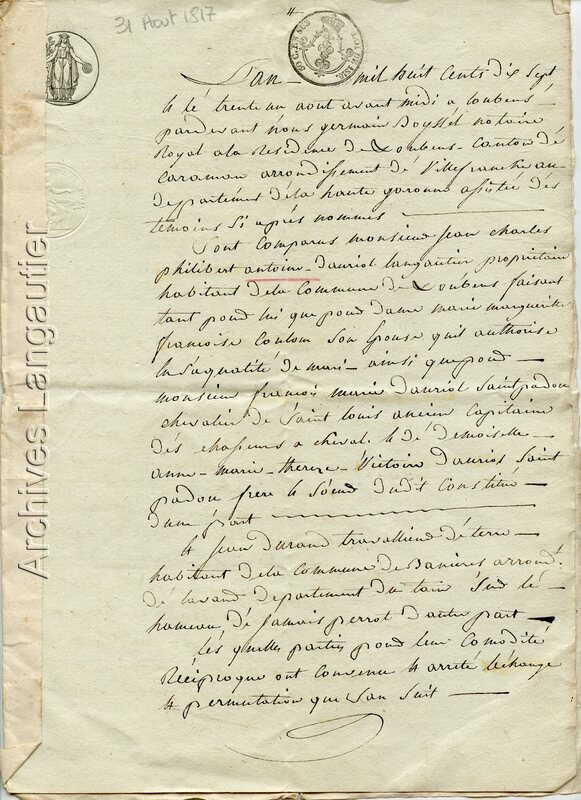 31 Aout 1817
L'an mil huit Cents dix Sept
& lé trente un aout avant midi a Loubens
pardevant nous germain Boyssel notaire
Royal a la Residence de Loubens Canton dé
caraman arrondissement dé Villefranche au
departement dela haute garonne assistée dés
temoins Si apres nommes
Sont Comparus monsieur Jean charles
philibert antoine dauriol langautier proprietaire
habitant dela Commune de Loubens faisant
tant pour lui que pour dame marie marguerite
francoise Coulom Son Epouse quil authorise
En Sa qualité de mari ainsi que pour
monsieur francois marie dauriol Saint padou
chevalier de Saint louis ancien Capitaine
dés chasseurs a cheval & dé demoiselle
anne-marie-thereze-Victoire dauriol Saint
padou frere & Soeur dudit Constitué
dune part
& Jean durand travailleur dé terre
habitant dela Commune de Banieres arrond.t
dé lavaur departement du tarn Sur lé
hameau dé Jamais perrot dautre part
Lés quelles parties pour leur Comodité
Réciproque ont convenu & arreté léchange
& permutation que San Suit
Archives Langautier